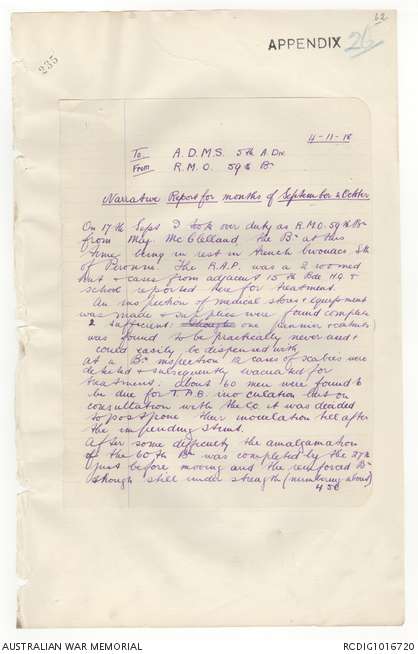 62
APPENDIX 26
235
4-11-18
To A.D.M.S. 5th A. Div
From R.M.O. 59th Bn
Narrative Report for months of September & October
On 17th Sept I took over duty as R.M.O. 59th Bn
from Maj. McClelland the Bn at this
time being in rest in trench bivouacs Sth
of Peronne. The R.A.P. was a 2 roomed
hut & cases from adjacent 15th Bde HQ &
school reported here for treatment.
An inspection of medical stores & equipment
was made & supplies were found complete
& sufficient: one pannier &
was found to be practically never used &
could easily be dispensed with
At a Bn inspection 12 cases of scabies were
detected & subsequently evacuated for
treatment: about 60 men were found to
be due for T.A.B. inoculation but on
consultation with the CO it was decided
to postpone their inoculation till after
the impending stunt.
After some difficulty the amalgamation
of the 60th Bn was completed by the 27th
just before moving and the reinforced Bn
though still under strength (numbering about)
450
AUSTRALIAN WAR MEMORIAL
RCDIG1016720